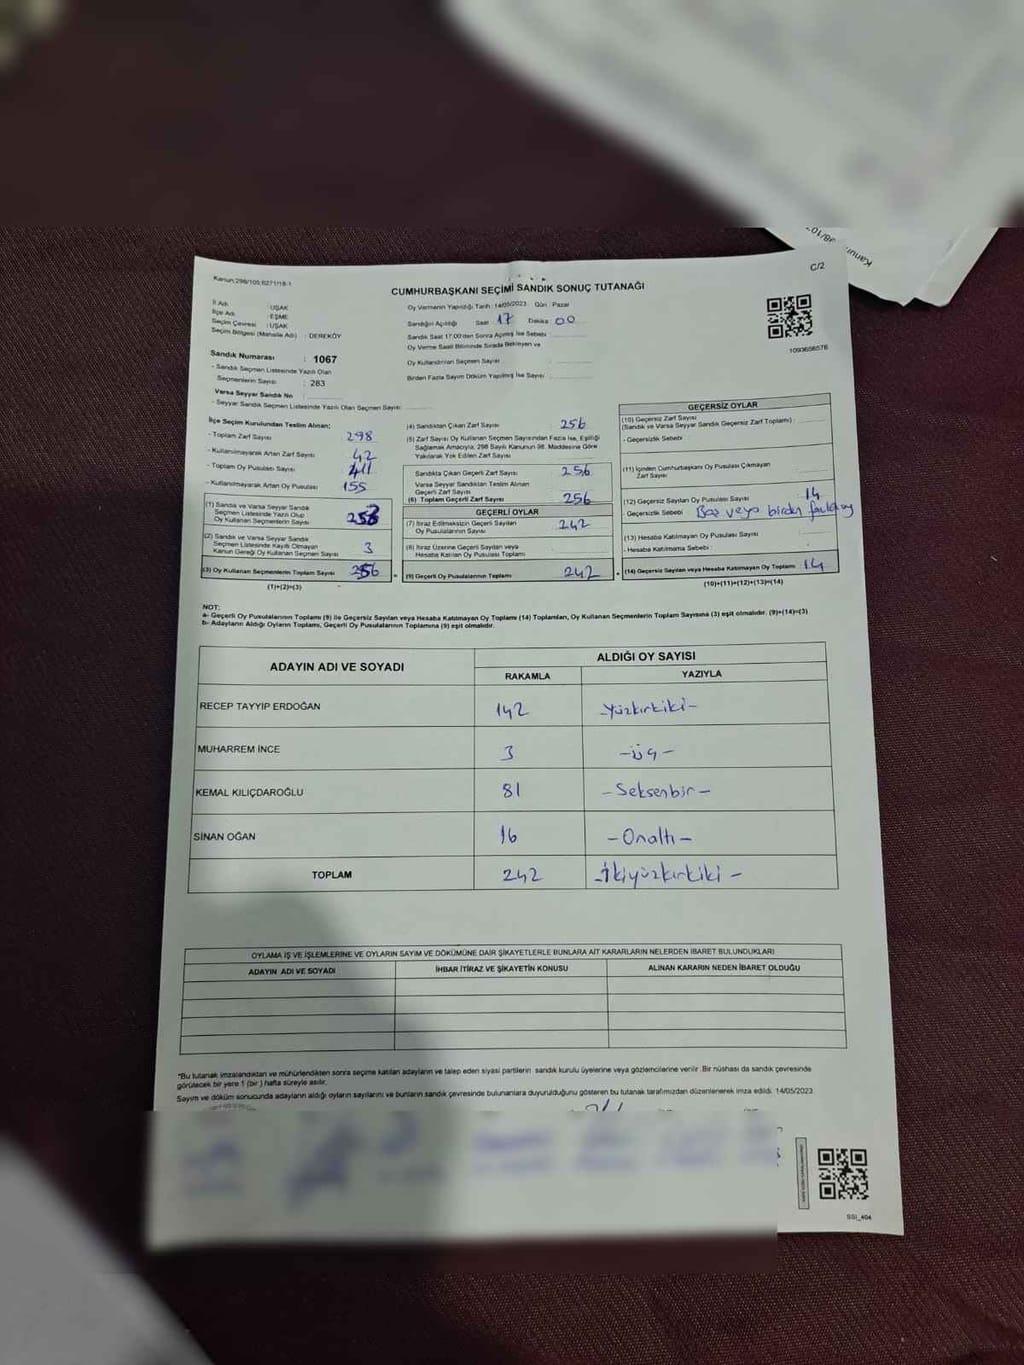 Kanun:298/105;6271/18-1
C/2
CUMHURBAŞKANI SEÇİMİ SANDIK SONUÇ TUTANAĞI
İl Adı : UŞAK
İlçe Adı : EŞME
Seçim Çevresi : UŞAK
Seçim Bölgesi (Mahalle Adı) : DEREKÖY
Oy Vermenin Yapıldığı Tarih : 14/05/2023 Gün : Pazar
Sandığın Açıldığı Saat : 17 Dakika : 00
Sandık Saat 17:00'den Sonra Açılmış İse Sebebi :
Oy Verme Saati Bitiminde Sırada Bekleyen ve
Oy Kullandırılan Seçmen Sayısı :
Birden Fazla Sayım Döküm Yapılmış İse Sayısı :
1093656576
Sandık Numarası : 1067
- Sandık Seçmen Listesinde Yazılı Olan
Seçmenlerin Sayısı : 283
Varsa Seyyar Sandık No :
- Seyyar Sandık Seçmen Listesinde Yazılı Olan Seçmen Sayısı:
İlçe Seçim Kurulundan Teslim Alınan;
- Toplam Zarf Sayısı 298
- Kullanılmayarak Artan Zarf Sayısı 42
- Toplam Oy Pusulası Sayısı 411
- Kullanılmayarak Artan Oy Pusulası 155
(1) Sandık ve Varsa Seyyar Sandık
Seçmen Listesinde Yazılı Olup
Oy Kullanan Seçmenlerin Sayısı
(2) Sandık ve Varsa Seyyar Sandık
Seçmen Listesinde Kayıtlı Olmayan
Kanun Gereği Oy Kullanan Seçmen Sayısı 3
(3) Oy Kullanan Seçmenlerin Toplam Sayısı 256
(1)+(2)=(3)
(4) Sandıktan Çıkan Zarf Sayısı 256
(5) Zarf Sayısı Oy Kullanan Seçmen Sayısından Fazla İse, Eşitliği
Sağlamak Amacıyla, 298 Sayılı Kanunun 98. Maddesine Göre
Yakılarak Yok Edilen Zarf Sayısı
Sandıkta Çıkan Geçerli Zarf Sayısı 256
Varsa Seyyar Sandıktan Teslim Alınan
Geçerli Zarf Sayısı
(6) Toplam Geçerli Zarf Sayısı 256
GEÇERLİ OYLAR
(7) İtiraz Edilmeksizin Geçerli Sayılan
Oy Pusulalarının Sayısı 242
(8) İtiraz Üzerine Geçerli Sayılan veya
Hesaba Katılan Oy Pusulası Toplamı
(9) Geçerli Oy Pusulalarının Toplamı 242
GEÇERSİZ OYLAR
(10) Geçersiz Zarf Sayısı
(Sandık ve Varsa Seyyar Sandık Geçersiz Zarf Toplamı) :
- Geçersizlik Sebebi :
(11) İçinden Cumhurbaşkanı Oy Pusulası Çıkmayan
Zarf Sayısı
(12) Geçersiz Sayılan Oy Pusulası Sayısı 14
- Geçersizlik Sebebi : Boş veya birden fazla oy
(13) Hesaba Katılmayan Oy Pusulası Sayısı :
- Hesaba Katılmama Sebebi :
(14) Geçersiz Sayılan veya Hesaba Katılmayan Oy Toplamı : 14
(10)+(11)+(12)+(13)=(14)
NOT:
a- Geçerli Oy Pusulalarının Toplamı (9) ile Geçersiz Sayılan veya Hesaba Katılmayan Oy Toplamı (14) Toplamları, Oy Kullanan Seçmenlerin Toplam Sayısına (3) eşit olmalıdır. (9)+(14)=(3)
b- Adayların Aldığı Oyların Toplamı, Geçerli Oy Pusulalarının Toplamına (9) eşit olmalıdır.
ADAYIN ADI VE SOYADI
ALDIĞI OY SAYISI
RAKAMLA YAZIYLA
RECEP TAYYİP ERDOĞAN 142 -Yüzkırkiki-
MUHARREM İNCE 3 -üç-
KEMAL KILIÇDAROĞLU 81 -Seksenbir-
SİNAN OĞAN 16 -Onaltı-
TOPLAM 242 -İkiyüzkırkiki-
OYLAMA İŞ VE İŞLEMLERİNE VE OYLARIN SAYIM VE DÖKÜMÜNE DAİR ŞİKAYETLERLE BUNLARA AİT KARARLARIN NELERDEN İBARET BULUNDUKLARI
ADAYIN ADI VE SOYADI İHBAR İTİRAZ VE ŞİKAYETİN KONUSU ALINAN KARARIN NEDEN İBARET OLDUĞU
*Bu tutanak imzalandıktan ve mühürlendikten sonra seçime katılan adayların ve talep eden siyasi partilerin sandık kurulu üyelerine veya gözlemcilerine verilir. Bir nüshası da sandık çevresinde
görülecek bir yere 1 (bir) hafta süreyle asılır.
Sayım ve döküm sonucunda adayların aldığı oyların sayılarını ve bunların sandık çevresinde bulunanlara duyurulduğunu gösteren bu tutanak tarafımızdan düzenlenerek imza edildi. 14/05/2023
SSI_404